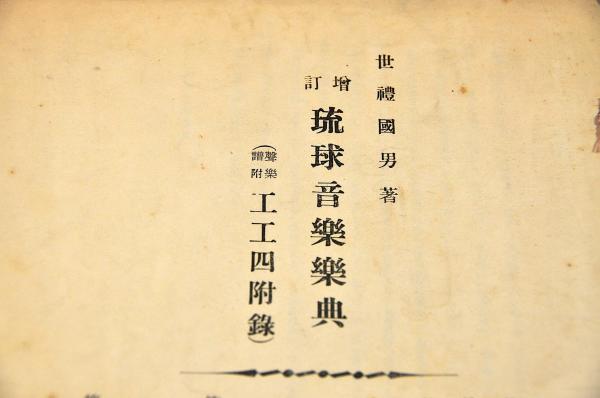 世禮國男著
增訂
琉球音樂樂典
(聲樂譜附
工工四附錄)